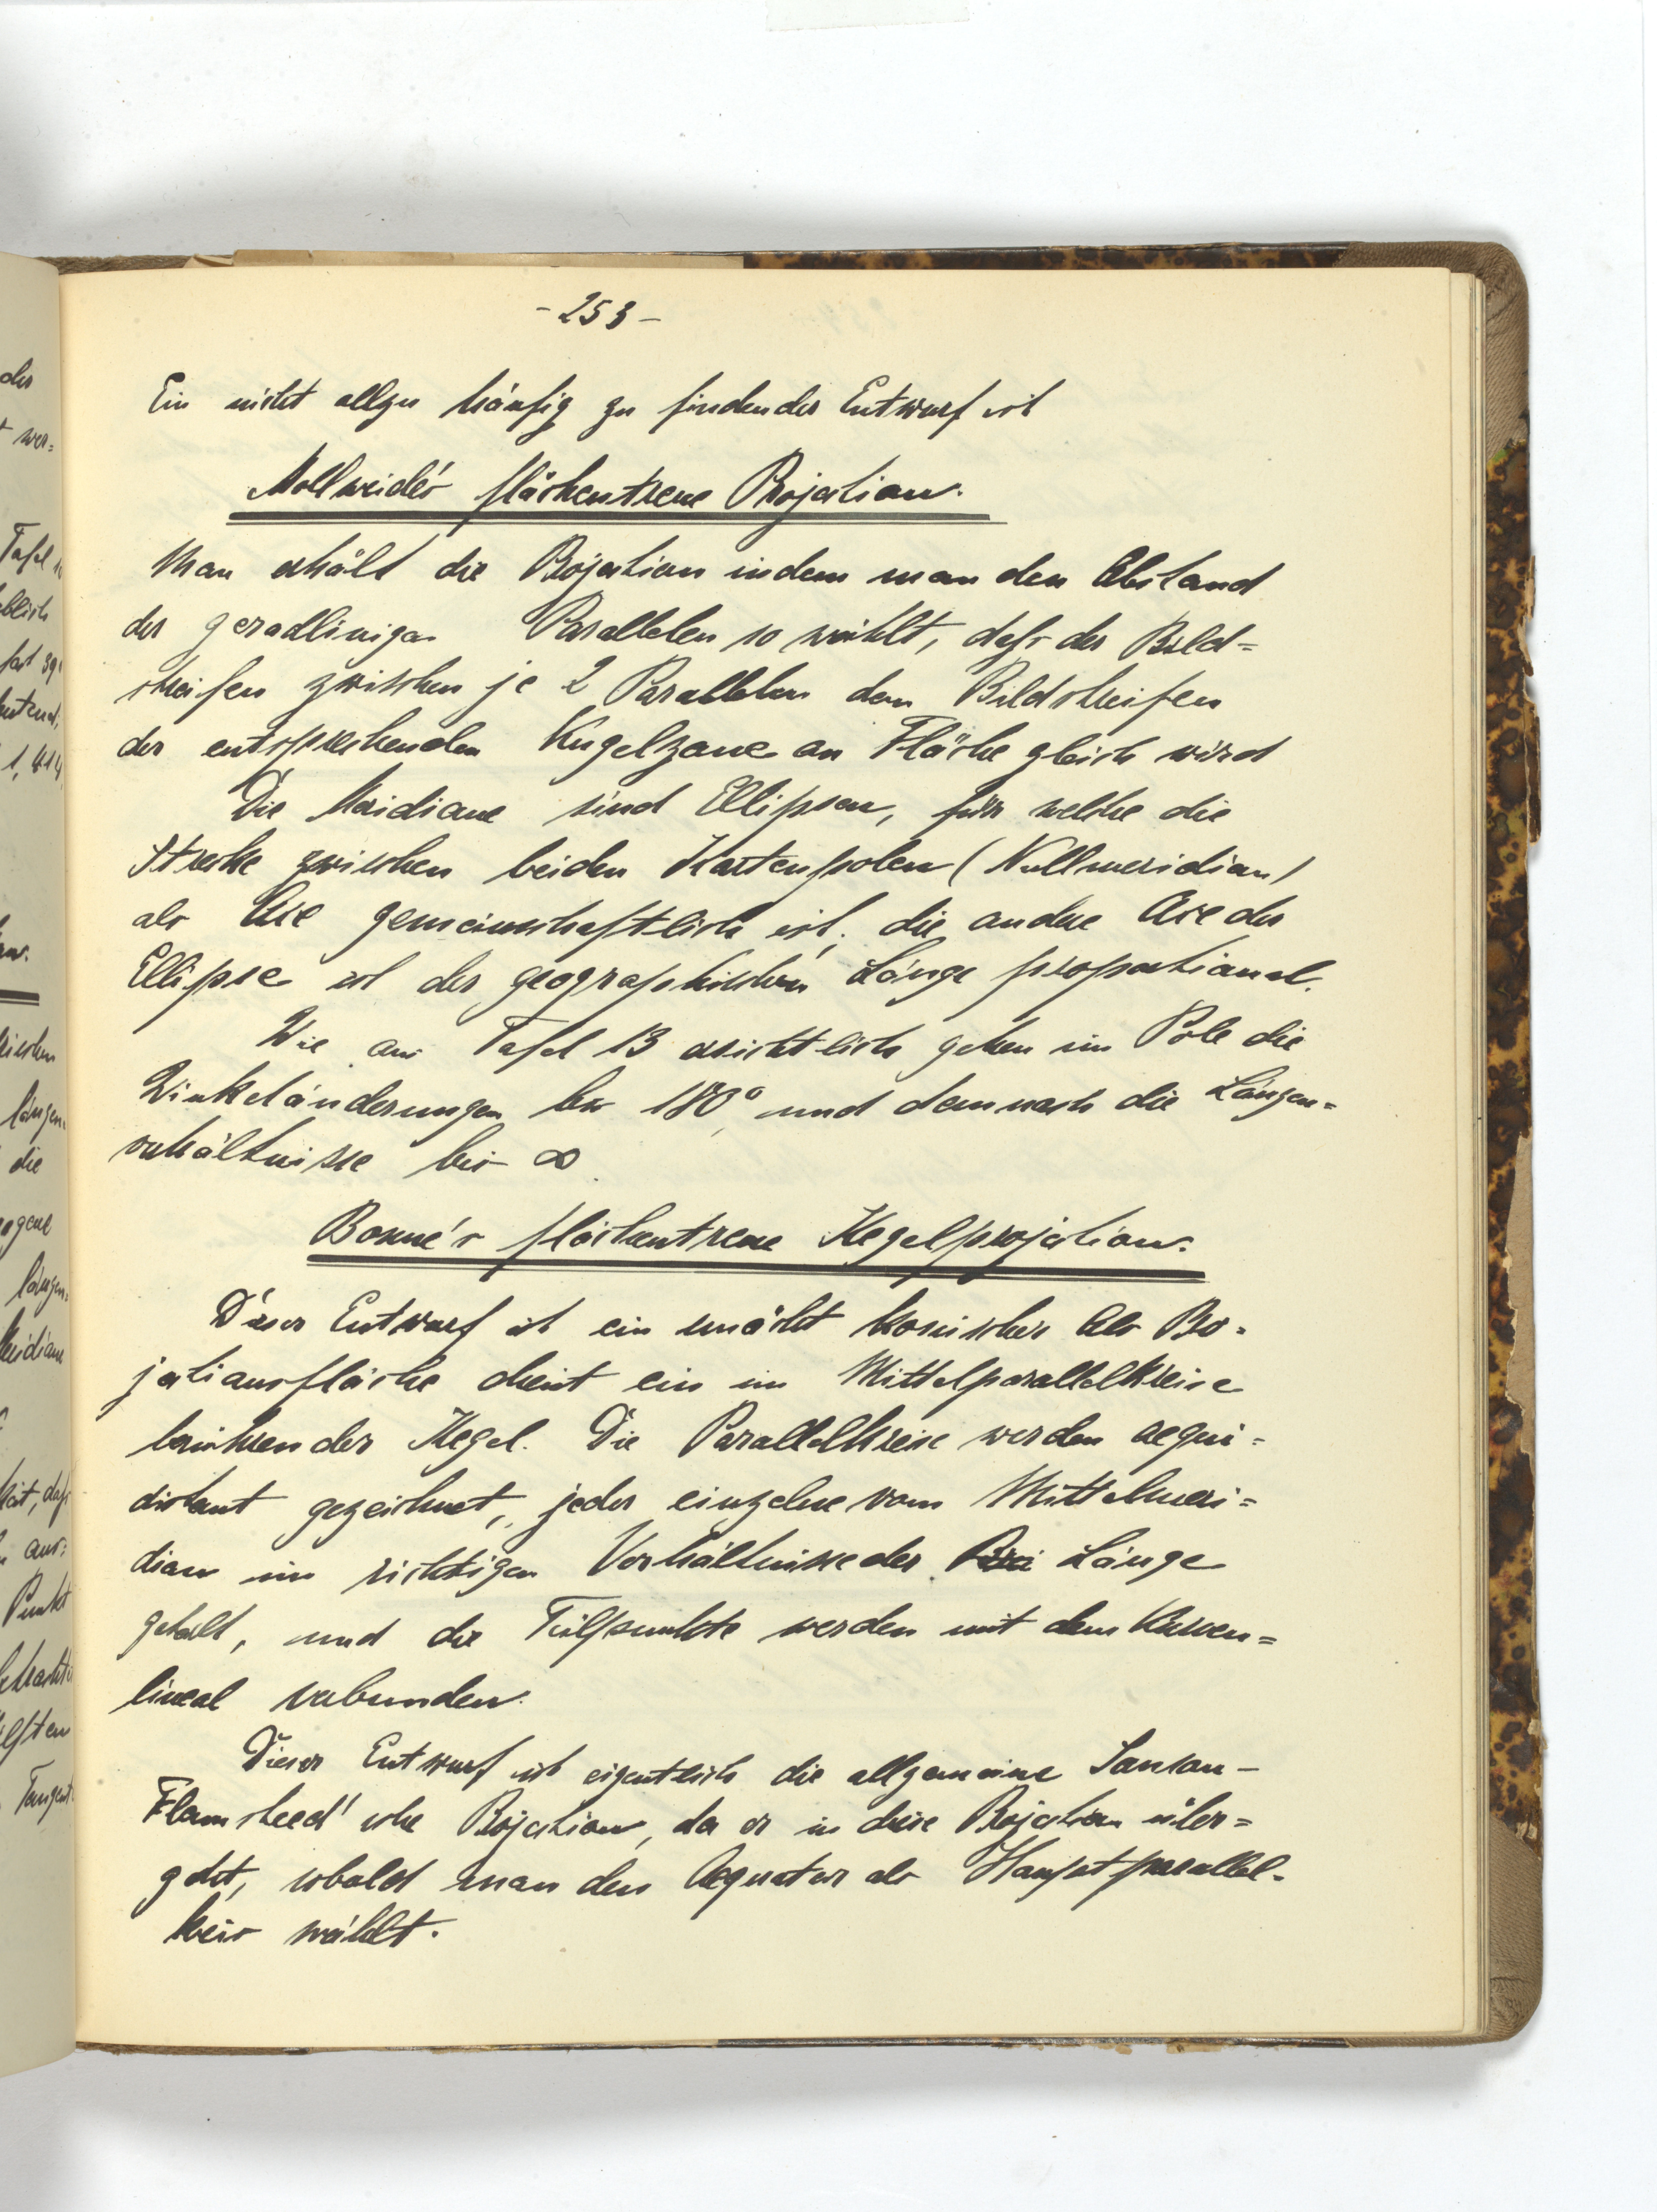 - 253 -
Ein nicht allzu häufig zu findender Entwurf ist
Mollweide's flächentreue Projection.
Man erhält die Projection indem man den Abstand
der geradlinigen Parallelen so wählt, dass der Bild=
streifen zwischen je 2 Parallelen dem Bildstreifen
der entsprechenden Kugelzone an Fläche gleich wird
Die Meridiane sind Ellipsen, für welche die
Strecke zwischen beiden Kartenpolen (Nullmeridian)
als Axe gemeinschaftlich ist, die andere Axe der
Ellipse ist der geographischen Länge proportional.
Wie aus Tafel 13 ersichtlich gehen im Pole die
Winkeländerungen bis 180°, und demnach die Längen=
verhältnisse bis ∞.
Bonne's flächentreue Kegelprojection.
Dieser Entwurf ist ein unächt konischer Als Pro=
jectionsfläche dient ein im Mittelparallelkreise
berührender Kegel. Die Parallelkreise werden aequi=
distant gezeichnet, jeder einzelne vom Mittelmeri=
dian im richtigen Verhältnisse der Länge
geteilt, und die Teilpunkte werden mit dem Kurven=
lineal verbunden.
Dieser Entwurf ist eigentlich die allgemeine Sanson-
Flamsteed'sche Projection, da er in diese Projection über=
geht, sobald man den Aequator als Hauptparallel-
kreis wählt.
der
wer=
Tafel
die
längen=
daß
Punkt